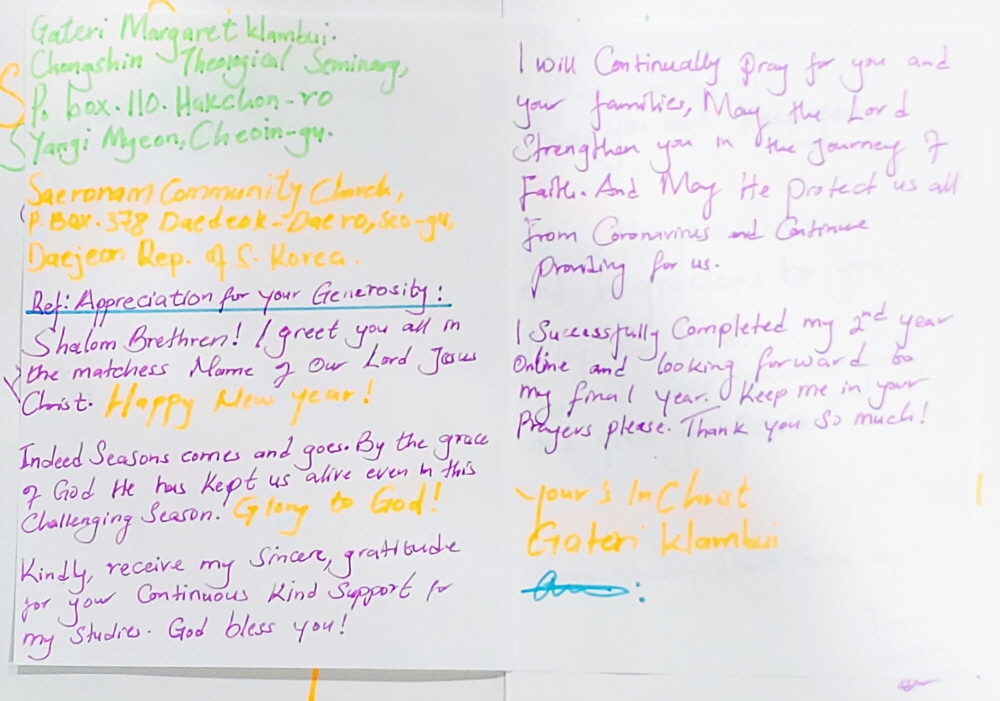 Gateri Margaret Klambui.
Chongshin Theological Seminary,
P. box. 110. Hakchon-ro
Yangi Myeon, Cheoin-gu.
Saeronam Community Church,
P. Box. 378 Daedeok-Daero, Seo-gu,
Daejeon Rep. of S. Korea.
Ref: Appreciation for your Generosity:
Shalom Brethren! I greet you all in
the matchess Name of Our Lord Jesus
Christ. Happy New year!
Indeed Seasons comes and goes. By the grace
of God He has Kept us alive even in this
Challenging Season. Glory to God!
Kindly, receive my Sincere, gratitude
for your Continuous Kind Support for
my Studies. God bless you!
I will Continually pray for you and
your families, May the Lord
Strengthen you in the journey of
Faith. And May He protect us all
from Coronavirus and Continue
providing for us.
I Successfully Completed my 2nd year
Online and looking forward to
my final year. Keep me in your
Prayers please. Thank you So much!
Your's In Christ
Gateri Klambui